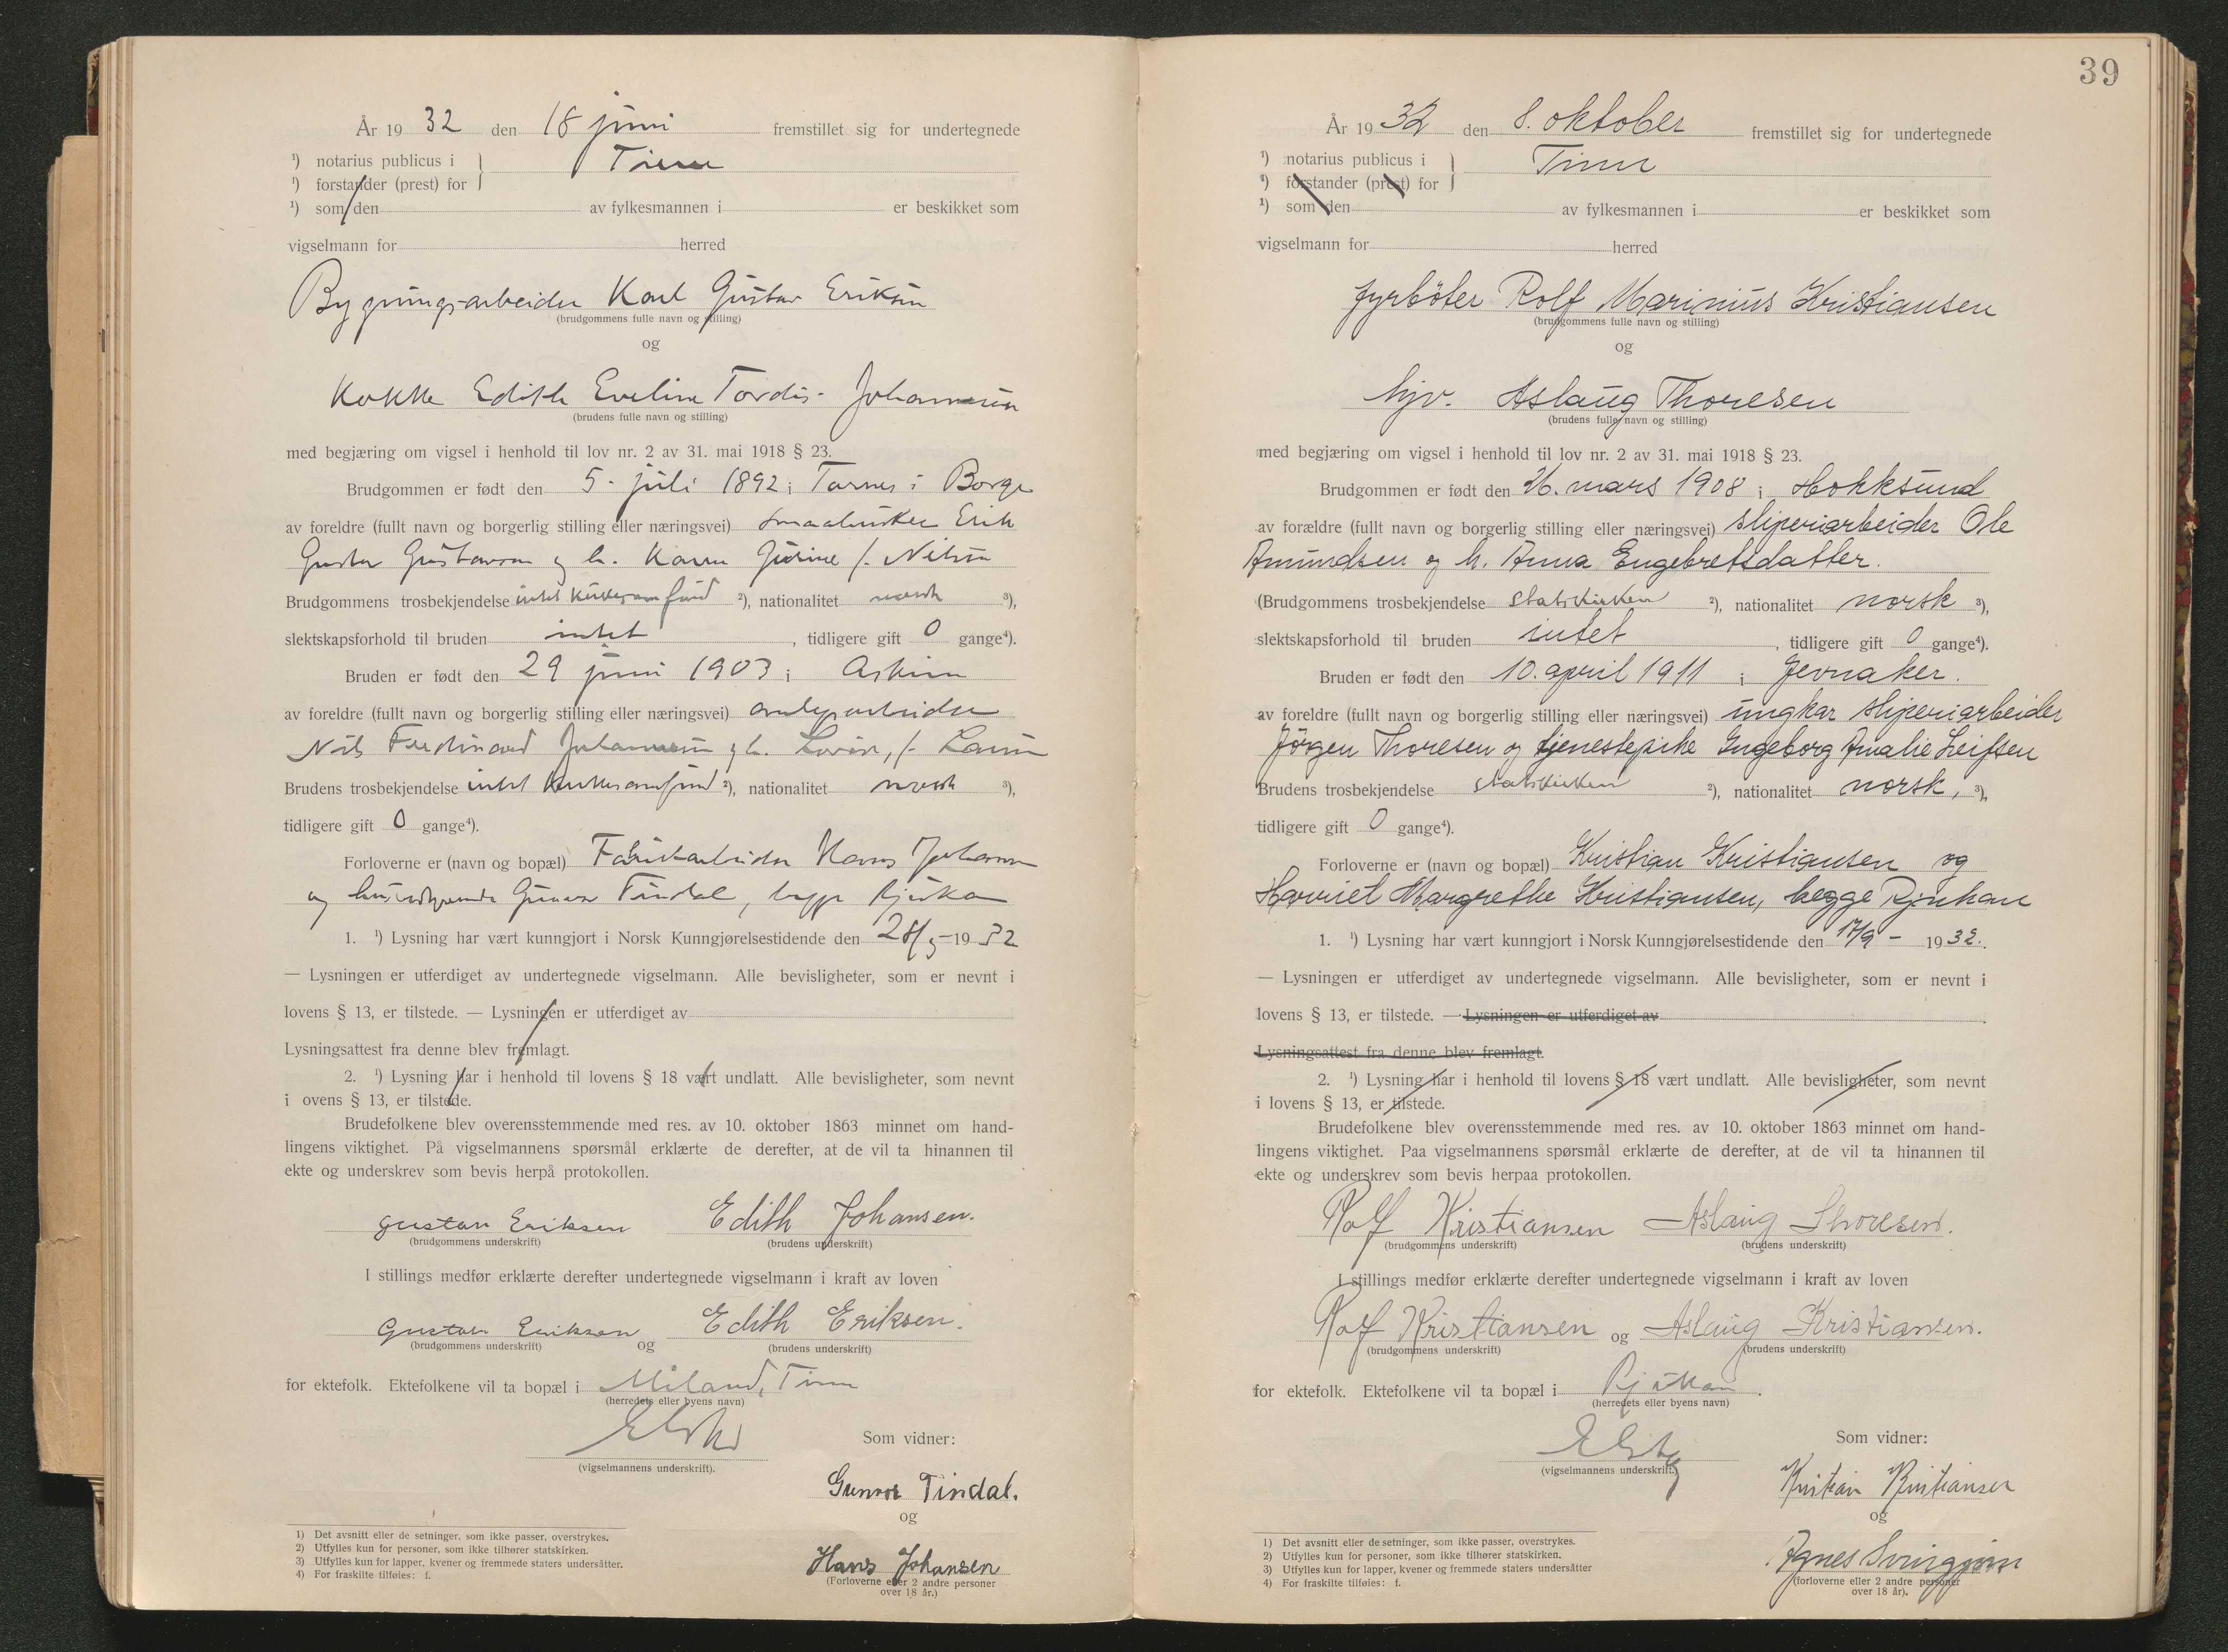 År 19 32 den 18 juni fremstillet sig for undertegnede
¹) notarius publicus i } Tinn
¹) forstander (prest) for
¹) som den av fylkesmannen i er beskikket som
vigselmann for herred
Bygningsarbeider Karl Gustav Eriksen
(brudgommens fulle navn og stilling)
og
Kokke Edith Eveline Tordis Johannesen
(brudens fulle navn og stilling)
med begjæring om vigsel i henhold til lov nr. 2 av 31. mai 1918 § 23.
Brudgommen er født den 5. juli 1892 i Tornes i Borge
av foreldre (fullt navn og borgerlig stilling eller næringsvei) smaabruker Erik
Gustav Gustavsen og h. Karen Gurine f. Nilsen
Brudgommens trosbekjendelse intet kirkesamfund ²), nationalitet norsk ³),
slektskapsforhold til bruden intet , tidligere gift 0 gange⁴).
Bruden er født den 29 juni 1903 i Askim
av foreldre (fullt navn og borgerlig stilling eller næringsvei) anlegsarbeider
Nils Ferdinand Johannesen og h. Lovise, f. Larsen
Brudens trosbekjendelse intet kirkesamfund ²), nationalitet norsk ³),
tidligere gift 0 gange⁴).
Forloverne er (navn og bopæl) Fabrikarbeider Hans Johansen
og Gunvor Tindal, begge Rjukan
1. ¹) Lysning har vært kunngjort i Norsk Kunngjørelsestidende den 28/5- 19 32
— Lysningen er utferdiget av undertegnede vigselmann. Alle bevisligheter, som er nevnt i
lovens § 13, er tilstede. — Lysningen er utferdiget av
Lysningsattest fra denne blev fremlagt.
2. ¹) Lysning har i henhold til lovens § 18 vært undlatt. Alle bevisligheter, som nevnt
i ovens § 13, er tilstede.
Brudefolkene blev overensstemmende med res. av 10. oktober 1863 minnet om hand-
lingens viktighet. På vigselmannens spørsmål erklærte de derefter, at de vil ta hinannen til
ekte og underskrev som bevis herpå protokollen.
Gustav Eriksen Edith Johansen.
(brudgommens underskrift) (brudens underskrift)
I stillings medfør erklærte derefter undertegnede vigselmann i kraft av loven
Gustav Eriksen og Edith Eriksen.
(brudgommens underskrift) (brudens underskrift)
for ektefolk. Ektefolkene vil ta bopæl i Miland, Tinn
(herredets eller byens navn)
Som vidner:
(vigselmannens underskrift).
Gunvor Tindal.
og
Hans Johansen
(Forloverne eller 2 andre personer
over 18 år.)
1) Det avsnitt eller de setninger, som ikke passer, overstrykes.
2) Utfylles kun for personer, som ikke tilhører statskirken.
3) Utfylles kun for lapper, kvener og fremmede staters undersåtter.
4) For fraskilte tilføies: f.
39
År 19 32 den 8. oktober fremstillet sig for undertegnede
¹) notarius publicus i } Tinn
¹) forstander (prest) for
¹) som den av fylkesmannen i er beskikket som
vigselmann for herred
fyrbøter Rolf Marinius Kristiansen
(brudgommens fulle navn og stilling)
og
hjv. Aslaug Thoresen
(brudens fulle navn og stilling)
med begjæring om vigsel i henhold til lov nr. 2 av 31. mai 1918 § 23.
Brudgommen er født den 26. mars 1908 i Hokksund
av forældre (fullt navn og borgerlig stilling eller næringsvei) sliperiarbeider Ole
Amundsen og h. Anna Engebretsdatter.
(Brudgommens trosbekjendelse statskirken ²), nationalitet norsk ³),
slektskapsforhold til bruden intet , tidligere gift 0 gange⁴).
Bruden er født den 10. april 1911 i Jevnaker.
av foreldre (fullt navn og borgerlig stilling eller næringsvei) ungkar sliperiarbeider
Jørgen Thoresen og tjenestepike Ingeborg Amalie Leifsen
Brudens trosbekjendelse statskirken ²), nationalitet norsk, ³),
tidligere gift 0 gange⁴).
Forloverne er (navn og bopæl) Kristian Kristiansen og
Harriet Margrethe Kristiansen, begge Rjukan
1. ¹) Lysning har vært kunngjort i Norsk Kunngjørelsestidende den 17/9 - 19 32.
— Lysningen er utferdiget av undertegnede vigselmann. Alle bevisligheter, som er nevnt i
lovens § 13, er tilstede. — Lysningen er utferdiget av
Lysningsattest fra denne blev fremlagt.
2. ¹) Lysning har i henhold til lovens § 18 vært undlatt. Alle bevisligheter, som nevnt
i lovens § 13, er tilstede.
Brudefolkene blev overensstemmende med res. av 10. oktober 1863 minnet om hand-
lingens viktighet. Paa vigselmannens spørsmål erklærte de derefter, at de vil ta hinannen til
ekte og underskrev som bevis herpaa protokollen.
Rolf Kristiansen Aslaug Thoresen.
(brudgommens underskrift) (brudens underskrift)
I stillings medfør erklærte derefter undertegnede vigselmann i kraft av loven
Rolf Kristiansen og Aslaug Kristiansen.
(brudgommens underskrift) (brudens underskrift)
for ektefolk. Ektefolkene vil ta bopæl i Rjukan .
(herredets eller byens navn)
Som vidner:
(vigselmannens underskrift.)
Kristian Kristiansen
og
Agnes
(forloverne eller 2 andre personer
over 18 år).
1) Det avsnitt eller de setninger, som ikke passer, overstrykes.
2) Utfylles kun for personer, som ikke tilhører statskirken.
3) Utfylles kun for lapper, kvener og fremmede staters undersåtter
4) For fraskilte tilføies: f.